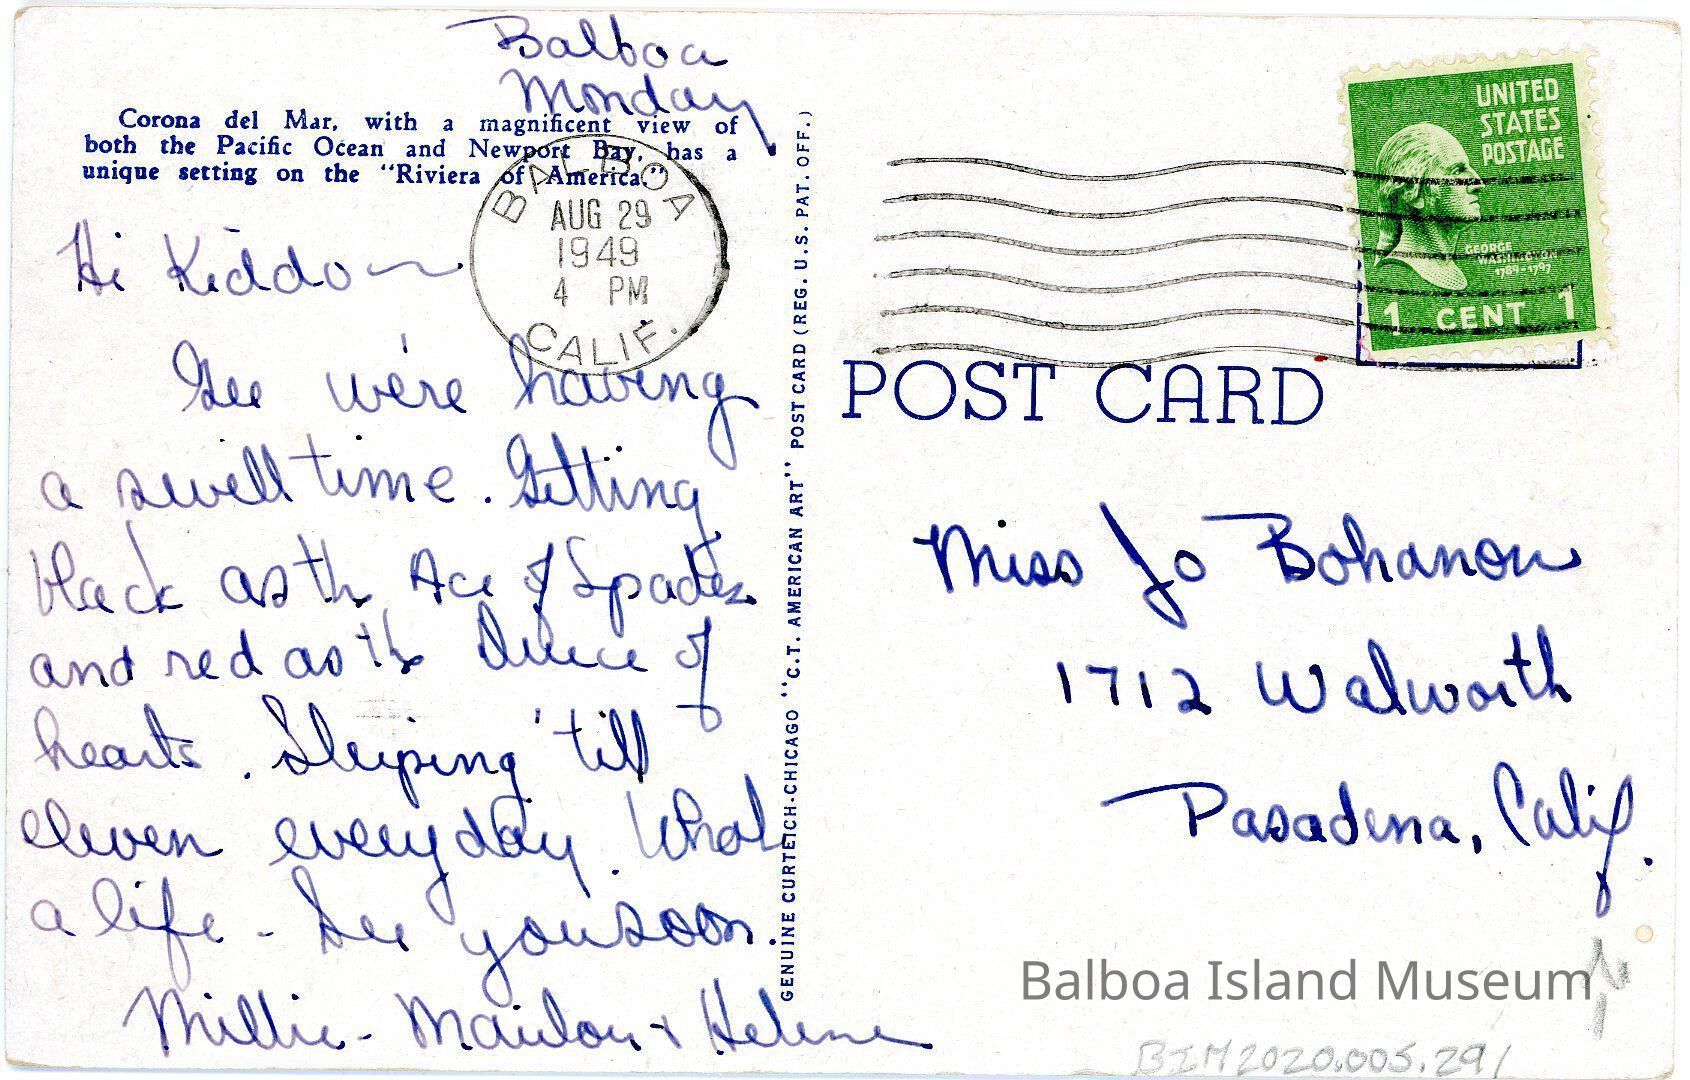 Balboa
Monday
Corona del Mar, with a magnificent view of
both the Pacific Ocean and Newport Bay, has a
unique setting on the "Riviera of America."
BALBOA
AUG 29
1949
4 PM
CALIF.
Hi Kiddo ~
Gee we're having
a swell time. Getting
black as th Ace of Spades
and red as th Duece of
hearts. Sleeping 'till
eleven everyday. What
a life - See you soon.
Millie - Marilou + Helene
GENUINE CURTEICH-CHICAGO "C.T. AMERICAN ART" POST CARD (REG. U.S. PAT. OFF.)
UNITED
STATES
POSTAGE
GEORGE
WASHINGTON
1789-1797
1 CENT 1
POST CARD
Miss Jo Bohanon
1712 Walworth
Pasadena, Calif.
Balboa Island Museum
BIM2020.005.291